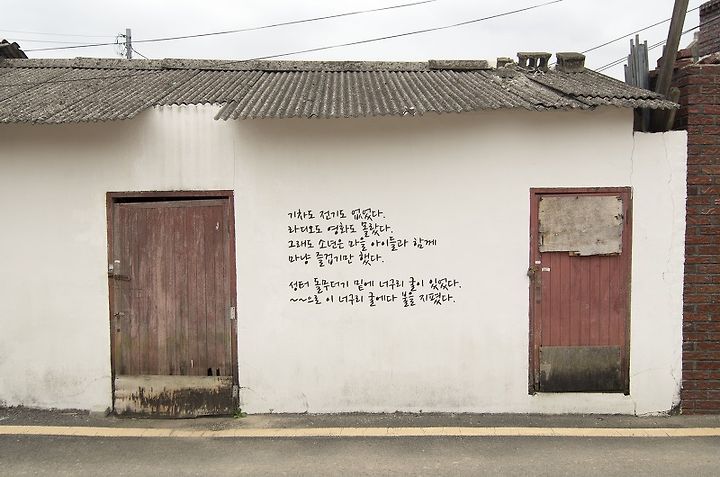 기차도 전기도 없었다.
라디오도 영화도 몰랐다.
그래도 소년은 마을 아이들과 함께
마냥 즐겁기만 했다.
성터 돌무더기 밑에 너구리 굴이 있었다.
~~으로 이 너구리 굴에다 불을 지폈다.